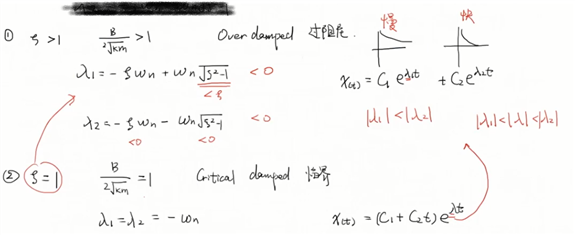 慢 快
① ζ > 1 B/2√km > 1 Over damped 过阻尼.
λ₁ = - ζ ωn + ωn √ζ²-1 < 0 x(t) = C₁ e^λ₁t + C₂ e^λ₂t
< ζ
λ₂ = - ζ ωn - ωn √ζ²-1 < 0 |λ₁| < |λ₂| |λ₁| < |λ| < |λ₂|
<0 <0
② ζ = 1 B/2√km = 1 Critical damped 临界
λ₁ = λ₂ = - ωn x(t) = (C₁ + C₂t) e^λt